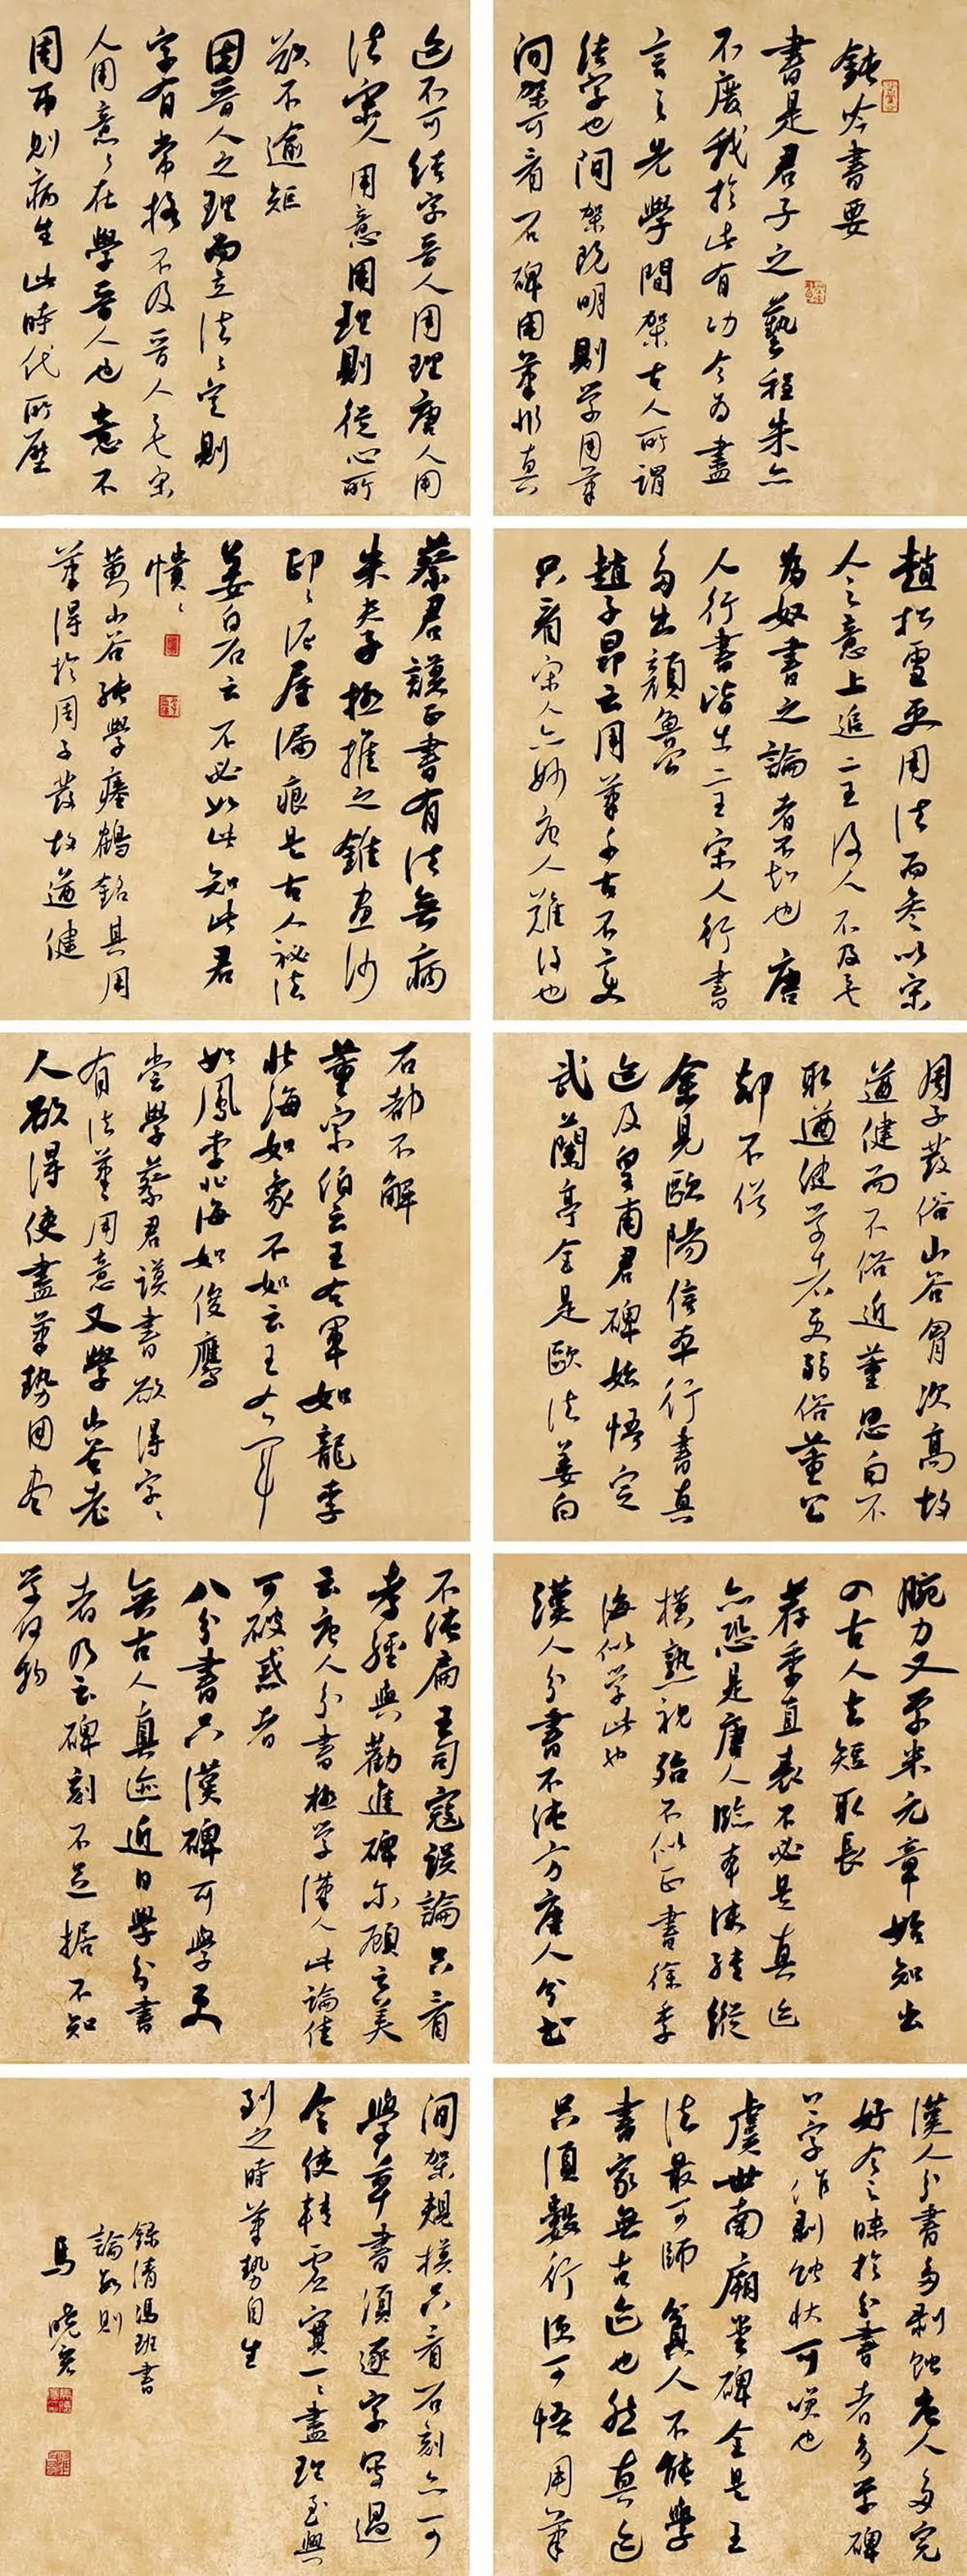 鈍吟書要
書是君子之藝程朱亦
不廢我於此有功今為盡
言之先學間架古人所謂
結字也間架既明則學用筆
間架可看石碑用筆非真
迹不可結字晉人用理唐人用
法宋人用意用理則從心所
欲不逾矩
因晉人之理而立法法定則
字有常格不及晉人矣宋
人用意意在學晉人也意不
周帀則病生此時代所壓
趙松雪更用法而參以宋
人之意上追二王後人不及矣
為奴書之論者不知也唐
人行書皆出二王宋人行書
多出顏魯公
趙子昂云用筆千古不變
只看宋人亦妙唐人難得也
蔡君謨正書有法無病
朱夫子極推之錐畫沙
印印泥屋漏痕是古人秘法
姜白石云不必如此知此君
憒憒
黃山谷純學瘞鶴銘其用
筆得於周子發故遒健
周子發俗山谷胷次高故
遒健而不俗近董思白不
取遒健學者更弱俗董公
却不俗
余見歐陽信本行書真
迹及皇甫君碑始悟定
武蘭亭全是歐法姜白
石都不解
董宗伯云王右軍如龍李
北海如象不如云王右軍
如鳳李北海如俊鷹
嘗學蔡君謨書欲得字字
有法筆筆用意又學山谷老
人欲得使盡筆勢用盡
腕力又學米元章始知出
入古人去短取長
荐季直表不必是真迹
亦恐是唐人臨本使轉縱
橫熟視殆不似正書徐季
海似學此也
漢人分書不純方唐人分書
不純扁王司寇誤論只看
孝經與勸進碑爾顧云美
云唐人分書極學漢人此論佳
可破惑者
八分書只漢碑可學更
無古人真迹近日學分書
者乃云碑刻不足據不知
學何物
漢人分書多剝蝕唐人多完
好今之昧於分書者多學碑
上字作剝蝕狀可哂也
虞世南廟堂碑全是王
法最可師貧人不能學
書家無古迹也然真迹
只須數行便可悟用筆
間架規模只看石刻亦可
學草書須逐字寫過
令使轉虛實一一盡理至興
到之時筆勢自生
錄清馮班書
論數則
馬